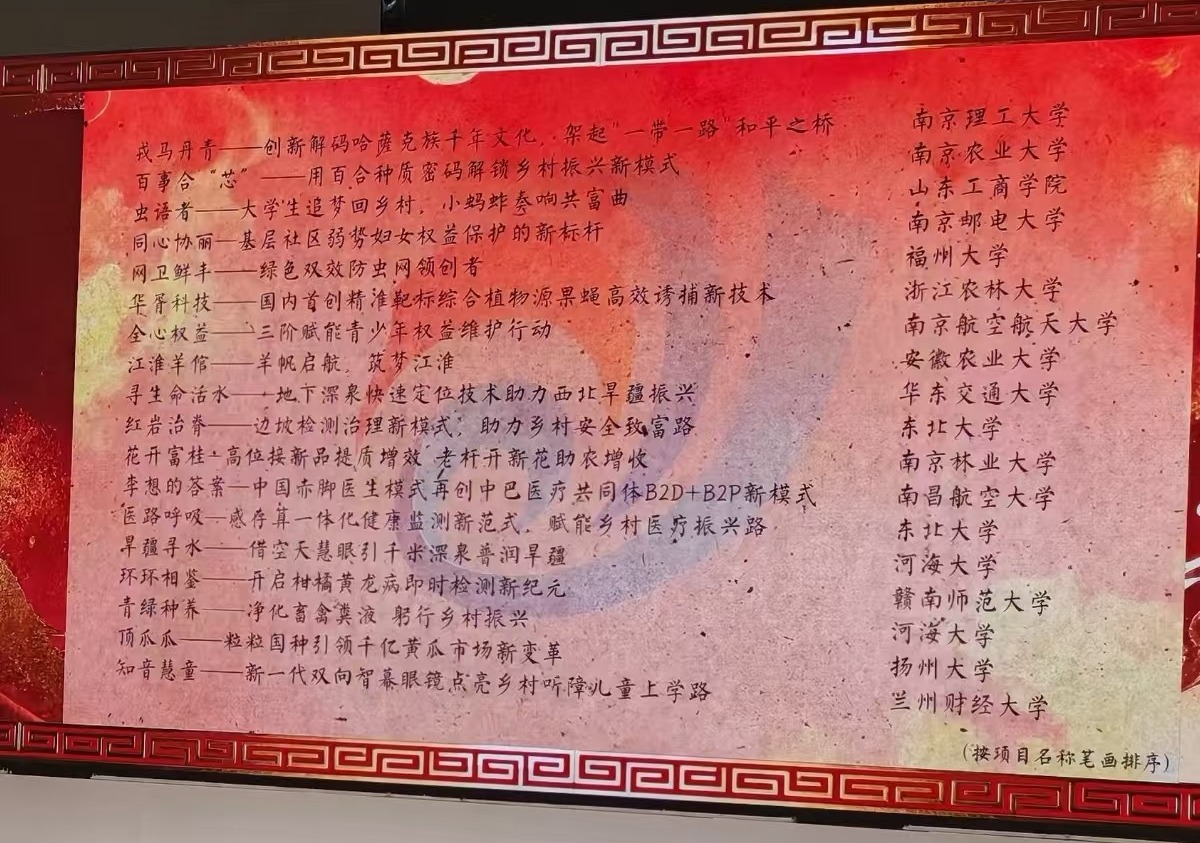 戎马丹青——创新解码哈萨克族千年文化，架起"一带一路"和平之桥 南京理工大学
百事合"芯"——用百合种质密码解锁乡村振兴新模式 南京农业大学
虫语者——大学生追梦回乡村，小蚂蚱奏响共富曲 山东工商学院
同心协丽—基层社区弱势妇女权益保护的新标杆 南京邮电大学
网卫鲜丰——绿色双效防虫网领创者 福州大学
华胥科技——国内首创精准靶标综合植物源果蝇高效诱捕新技术 浙江农林大学
全心权益——三阶赋能青少年权益维护行动 南京航空航天大学
江淮羊倌——羊帆启航，筑梦江淮 安徽农业大学
寻生命活水——地下深泉快速定位技术助力西北旱疆振兴 华东交通大学
红岩治脊——边坡检测治理新模式，助力乡村安全致富路 东北大学
花开富桂-高位接新品提质增效 老杆开新花助农增收 南京林业大学
李想的答案—中国赤脚医生模式再创中巴医疗共同体B2D+B2P新模式 南昌航空大学
医路呼吸—感存算一体化健康监测新范式，赋能乡村医疗振兴路 东北大学
旱疆寻水——借空天慧眼引千米深泉普润旱疆 河海大学
环环相鉴——开启柑橘黄龙病即时检测新纪元 赣南师范大学
青绿种养——净化畜禽粪液 躬行乡村振兴 河海大学
顶瓜瓜——粒粒国种引领千亿黄瓜市场新变革 扬州大学
知音慧童——新一代双向智幕眼镜点亮乡村听障儿童上学路 兰州财经大学
（按项目名称笔画排序）